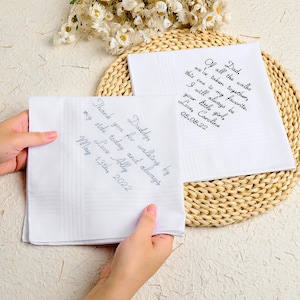 Daddy
Thank you for walking by
my side today and always
Love Ally
May 13th, 2022
Dad
Of all the walks
we've taken together,
this one is my favorite.
I will always be
your little girl
Love, Caroline
05.08.22